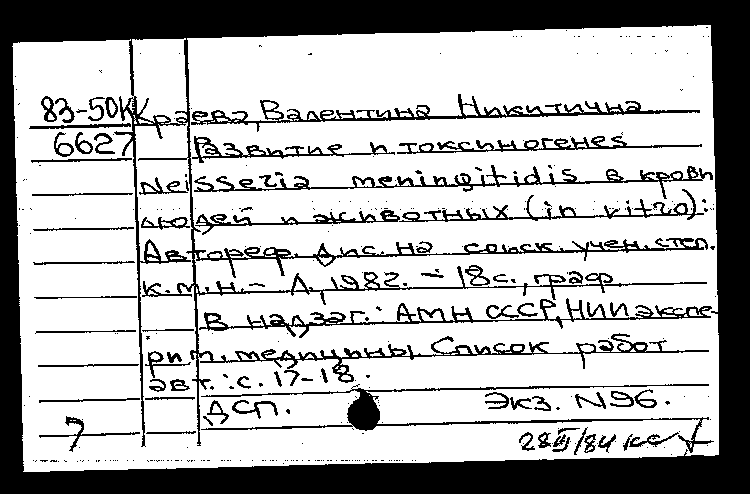 83-50К Краева, Валентина Никитична
6627 Развитие и токсиногенез
Neisseria meningitidis в крови
людей и животных (in vitro):
Автореф. дис. на соиск. учен. степ.
к.м.н. – Л., 1982. – 18с., граф
В надзаг.: АМН СССР, НИИ экспе-
рим. медицины. Список работ
авт.: с. 17-18.
ДСП. Экз. N96.
7
28 III/84